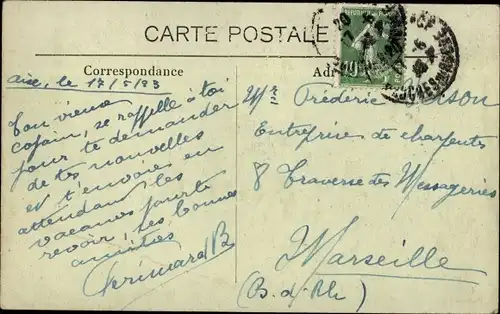 CARTE POSTALE
Correspondance
Aix, le 17/5/23
Ton vieux
copain, se rappelle à toi
pour te demander
de tes nouvelles
et t'envoies en
attendant les
vacances pour te
revoir, les bonnes
amitiés
Mr Frédéric
Entreprise de charpentes
8 Traverse des Messageries
Marseille
(B. d. Rh)